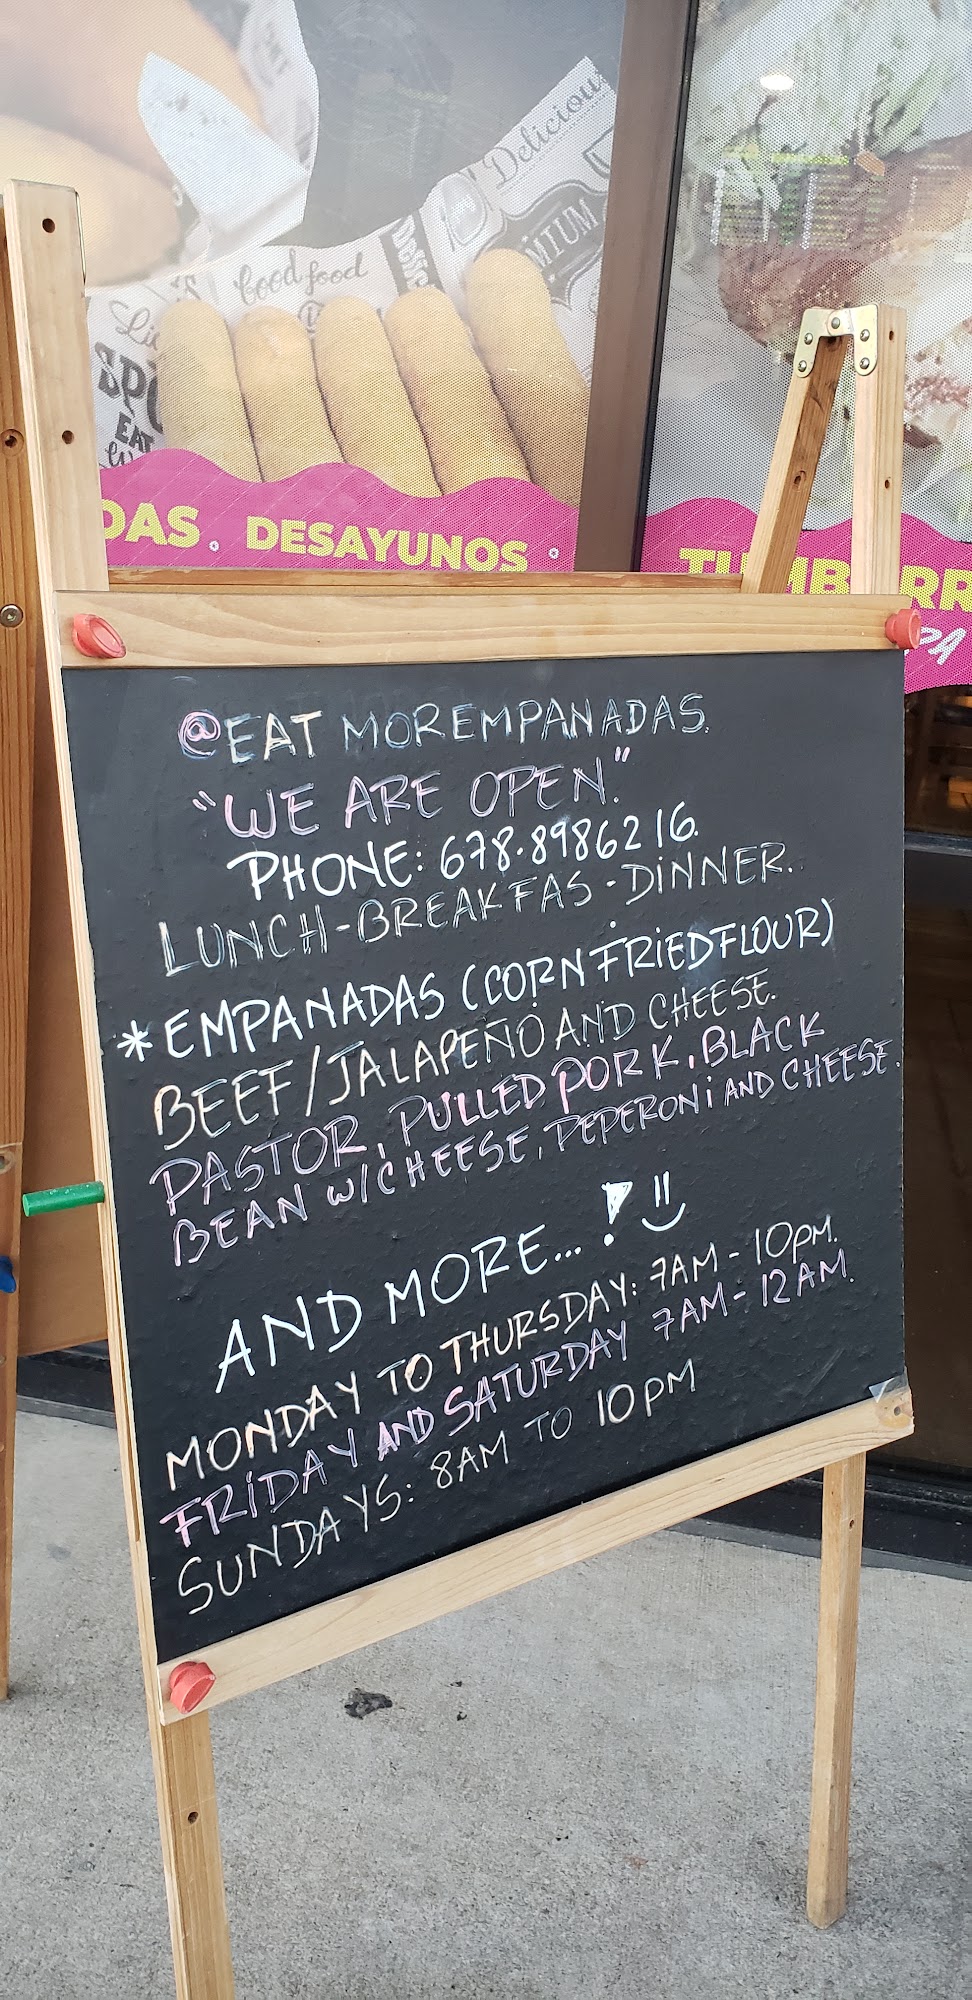 Delicious
Good food
EAT
DAS . DESAYUNOS .
@EAT MOREMPANADAS.
"WE ARE OPEN."
PHONE: 678.8986216.
LUNCH-BREAKFAS-DINNER.
*EMPANADAS (CORN FRIED FLOUR)
BEEF/JALAPEÑO AND CHEESE.
PASTOR, PULLED PORK, BLACK
BEAN W/CHEESE, PEPERONI AND CHEESE.
AND MORE... !
MONDAY TO THURSDAY: 7AM - 10PM.
FRIDAY AND SATURDAY 7AM - 12AM.
SUNDAYS: 8AM TO 10PM